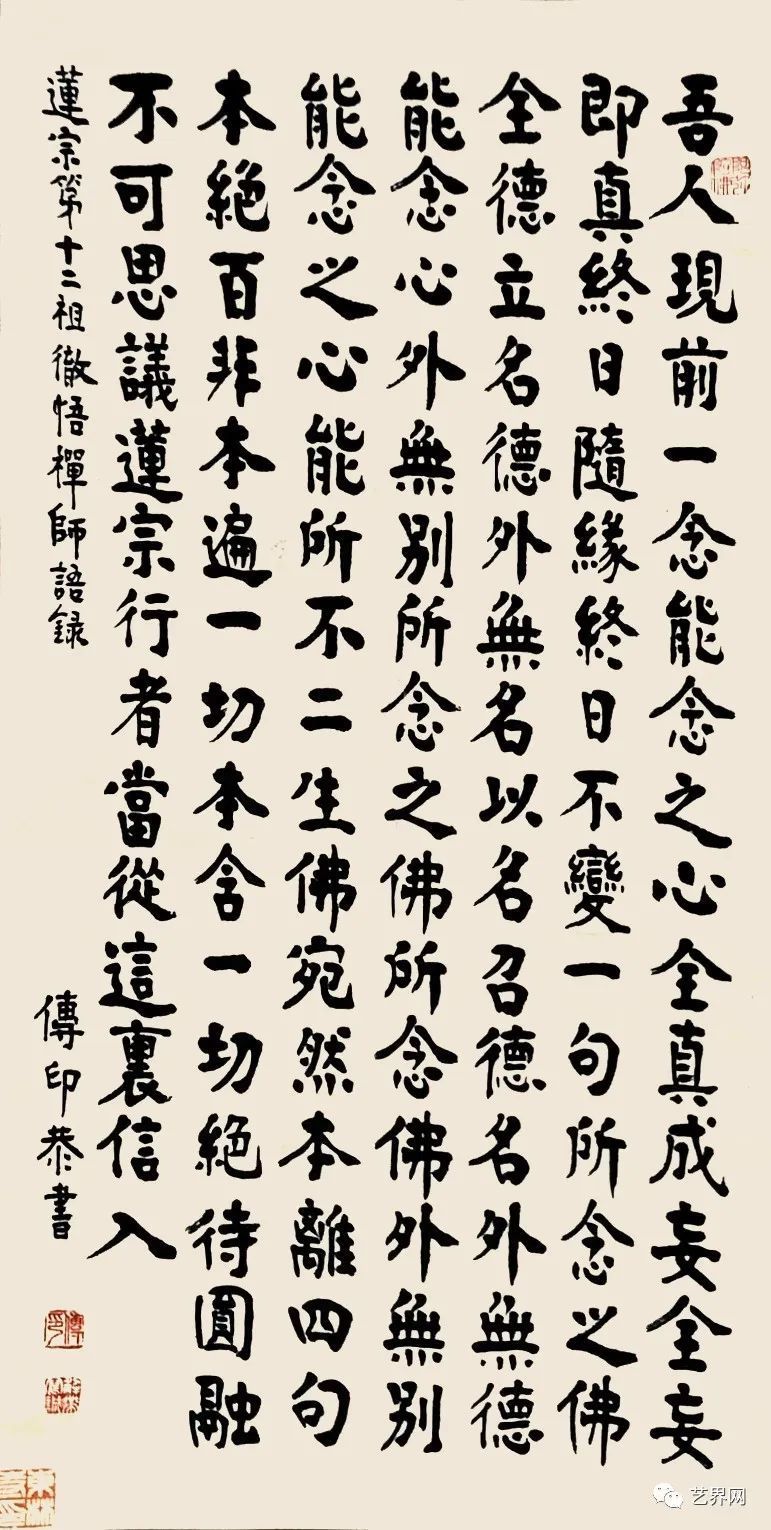 吾人現前一念能念之心全真成妄全妄
即真終日隨緣終日不變一句所念之佛
全德立名德外無名以名召德名外無德
能念心外無別所念之佛所念佛外無別
能念之心能所不二生佛宛然本離四句
本絕百非本遍一切本含一切絕待圓融
不可思議蓮宗行者當從這裏信入
蓮宗第十二祖徹悟禪師語錄
傳印恭書
艺界网